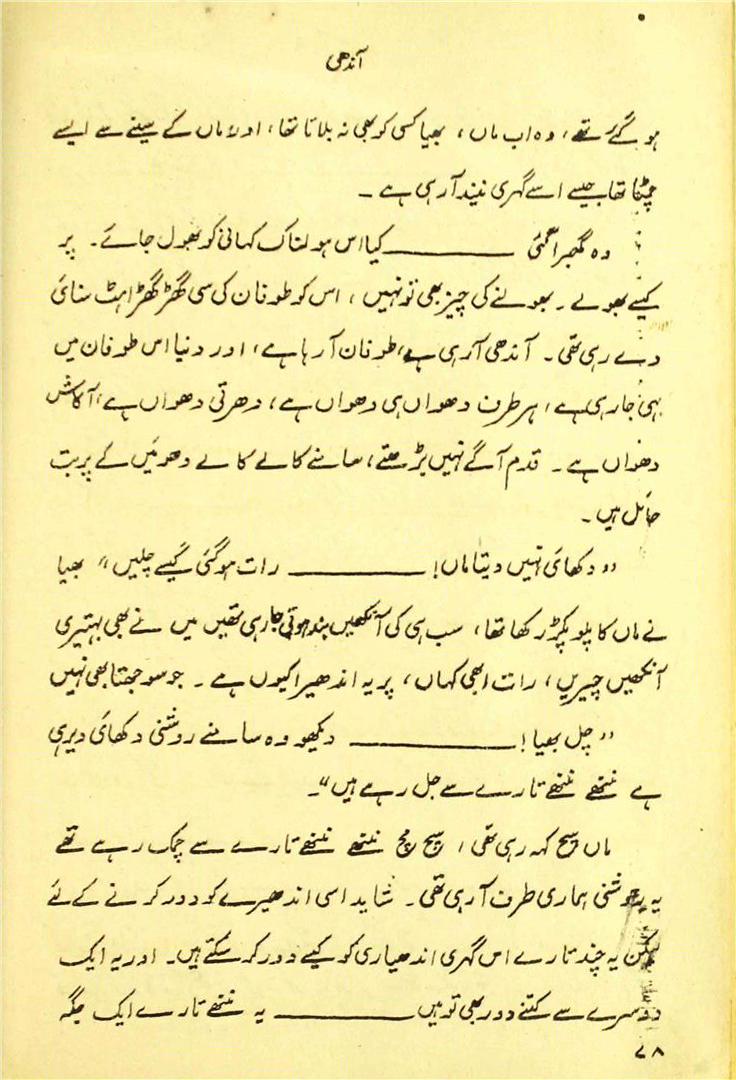 آندھی
ہو گئے تھے، وہ اب ماں، بھیا کسی کو بھی نہ بلاتا تھا، اور ماں کے سینے سے ایسے
چمٹا تھا جیسے اسے گہری نیند آ رہی ہے ۔
وہ گھبرا گئی ــــــــــ کیا اس ہولناک کہانی کو بھول جائے۔ پر
کیسے بھولے ۔ بھولنے کی چیز بھی تو نہیں ، اس کو طوفان کی سی گھڑ گھڑاہٹ سنائی
دے رہی تھی ۔ آندھی آ رہی ہے، طوفان آ رہا ہے، اور دنیا اس طوفان میں
بہی جا رہی ہے، ہر طرف دھواں ہی دھواں ہے، دھرتی دھواں ہے، آکاش
دھواں ہے ۔ قدم آگے نہیں بڑھتے، سامنے کالے کالے دھوئیں کے پربت
حائل ہیں ۔
”دکھائی نہیں دیتا ماں! ــــــــــ رات ہو گئی کیسے چلیں“ بھیا
نے ماں کا پلو پکڑ رکھا تھا، سب ہی کی آنکھیں بند ہوتی جا رہی تھیں میں نے بھی بہتیری
آنکھیں چیریں ، رات ابھی کہاں، پر یہ اندھیرا کیوں ہے ۔ جو سوجھتا بھی نہیں
”چل بھیا! ــــــــــ دیکھو وہ سامنے روشنی دکھائی دیرہی
ہے ننھے ننھے تارے سے جل رہے ہیں“۔
ماں سچ کہہ رہی تھی، سچ مچ ننھے ننھے تارے سے چمک رہے تھے
یہ روشنی ہماری طرف آ رہی تھی ۔ شاید اسی اندھیرے کو دور کرنے کے لئے
لیکن یہ چند تارے اس گہری اندھیاری کو کیسے دور کر سکتے ہیں۔ اور یہ ایک
دوسرے سے کتنے دور بھی تو ہیں ــــــــــ یہ ننھے تارے ایک جگہ
۷۸